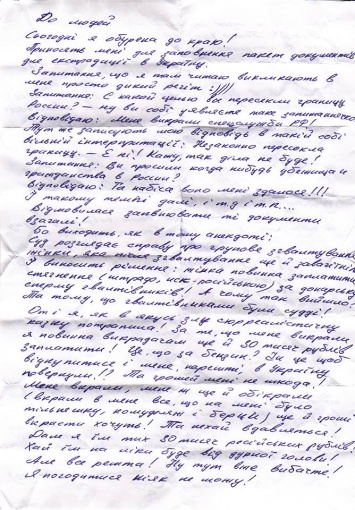 До людей
Сьогодні я обурена до краю!
Приносять мені для заповнення пакет документів
для екстрадиції в Україну.
Запитання, що я там читаю викликають в
мене просто дикий регіт :))))
Запитання: С какой целью вы пересекли границу
России? – ну ви собі уявляєте таке запитаннячко
Відповідаю: Мене викрали спецслужби РФ!
Тут же записують мою відповідь в такій собі
вільній інтерпритації: Незаконно пересекла
границу. – Е ні! Кажу, так діла не буде!
Запитання: Ви просили когда нибудь убежища и
гражданства в России?
Відповідаю: Та набіса воно мені здалося!!!
У такому темпі далі, і т.д і т.п...
Відмовилася заповнювати ті документи
взагалі!
Бо виходить, як в тому анекдоті:
Суд розглядає справу про групове зґвалтування
жінки, яка після зґвалтування ще й завагітніла
І виносить рішення: жінка повинна заплатити
стягнення за донорську
сперму ґвалтівників! А чому так вийшло?
Та тому, що ґвалтівниками були судді!
От і я, як в якусь сюрреалістичну
казку потрапила! За те, що мене викрали
я повинна викрадачам ще й 30 тисяч рублів
заплатити! Це, що за бензин? Чи це щоб
відкупитися і мене, нарешті, в Україну
повернули!? Та грошей мені не шкода!
Мене вкрали, мене ж ще й обікрали
(вкрали в мене все, що на мені було
тільняшку, камуфляж і берці) ще й гроші
вкрасти хочуть! Та нехай вдавляться!
Дам я їм тих 30 тисяч російських рублів!
Хай їм на ліки буде від дурної голови!
Але все решта! Ну тут вже вибачте!
Я погодитися ніяк не можу!